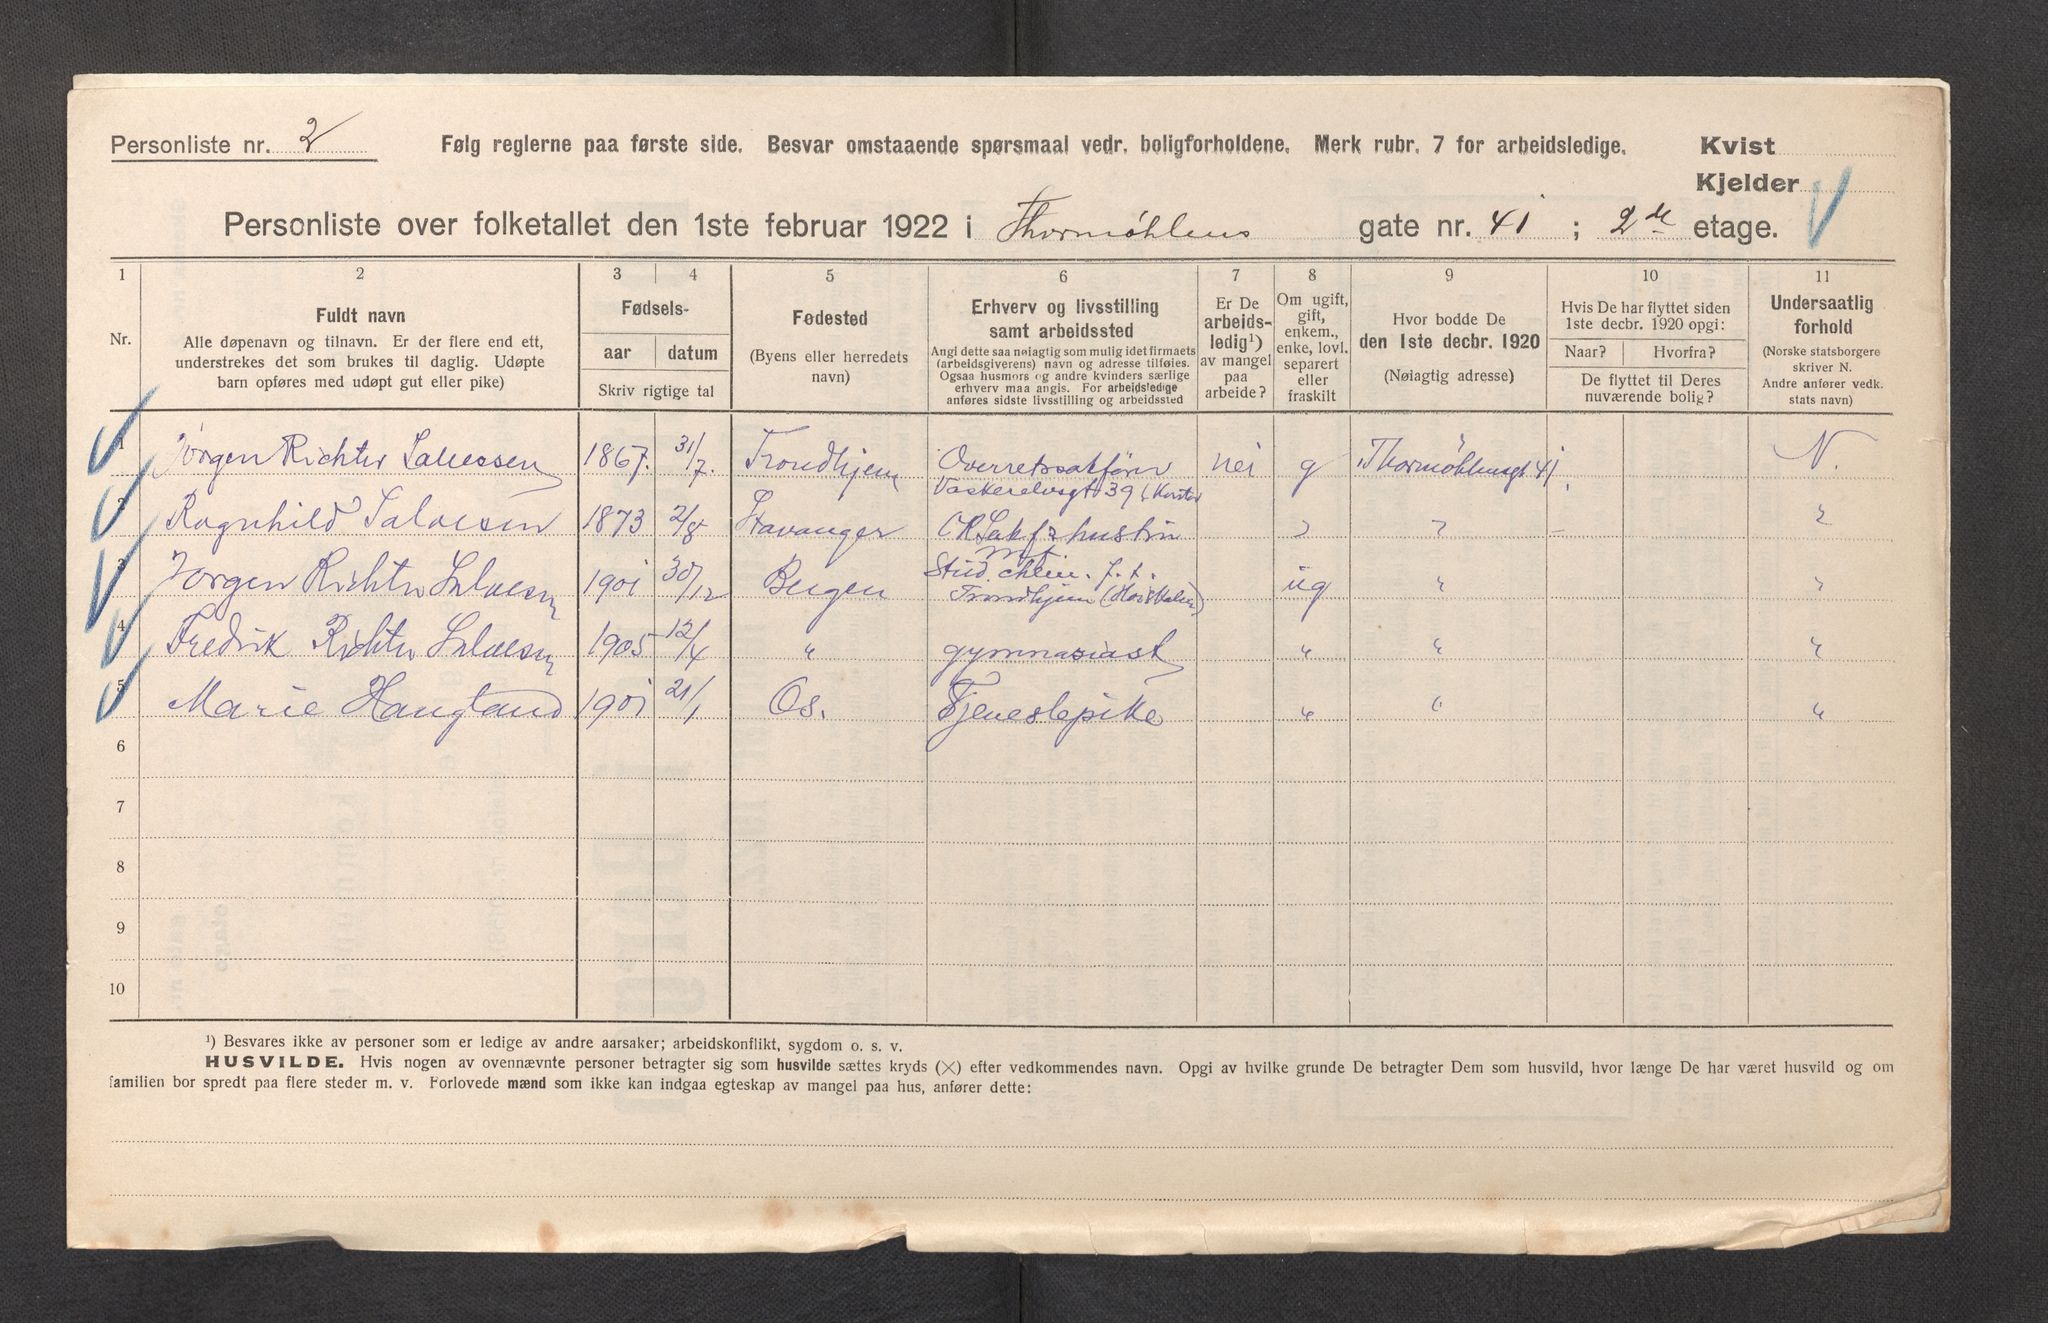 Personliste nr. 2 Følg reglerne paa første side. Besvar omstaaende spørsmaal vedr. boligforholdene. Merk rubr. 7 for arbeidsledige. Kvist
Kjelder
Personliste over folketallet den 1ste februar 1922 i Thormøhlens gate nr. 41 ; 2de etage.
1 2 3 4 5 6 7 8 9 10 11
Nr.
Fuldt navn
Alle døpenavn og tilnavn. Er der flere end ett,
understrekes det som brukes til daglig. Udøpte
barn opføres med udøpt gut eller pike)
Fødsels-
aar datum
Skriv rigtige tal
Fødested
(Byens eller herredets
navn)
Erhverv og livsstilling
samt arbeidssted
Angi dette saa nøiagtig som mulig idet firmaets
(arbeidsgiverens) navn og adresse tilføies.
Ogsaa husmors og andre kvinders særlige
erhverv maa angis. For arbeidsledige
anføres sidste livsstilling og arbeidssted
Er De
arbeids-
ledig¹)
av mangel
paa
arbeide?
Om ugift,
gift,
enkem.,
enke, lovl.
separert
eller
fraskilt
Hvor bodde De
den 1ste decbr. 1920
(Nøiagtig adresse)
Hvis De har flyttet siden
1ste decbr. 1920 opgi:
Naar? Hvorfra?
De flyttet til Deres
nuværende bolig?
Undersaatlig
forhold
(Norske statsborgere
skriver N.
Andre anfører vedk.
stats navn)
1 Jørgen Richter Salvessen 1867. 31/7. Trondhjem Overretssakfører nei g Thormøhlensgt 41. N.
39
2 Ragnhild Salvesen 1873 2/8 Stavanger hustru " " – "
3 Jørgen Richter Salvesen 1901 30/12 Bergen Stud. chem. f. t. ug " "
Trondhjem
4 Fredrik Richter Salvesen 1905 12/4 " gymnasiast " " "
5 Marie Haugland 1901 21/1 Os. Tjenestepike " " "
6
7
8
9
10
¹) Besvares ikke av personer som er ledige av andre aarsaker; arbeidskonflikt, sygdom o. s. v.
HUSVILDE. Hvis nogen av ovennævnte personer betragter sig som husvilde sættes kryds (×) efter vedkommendes navn. Opgi av hvilke grunde De betragter Dem som husvild, hvor længe De har været husvild og om
familien bor spredt paa flere steder m. v. Forlovede mænd som ikke kan indgaa egteskap av mangel paa hus, anfører dette: